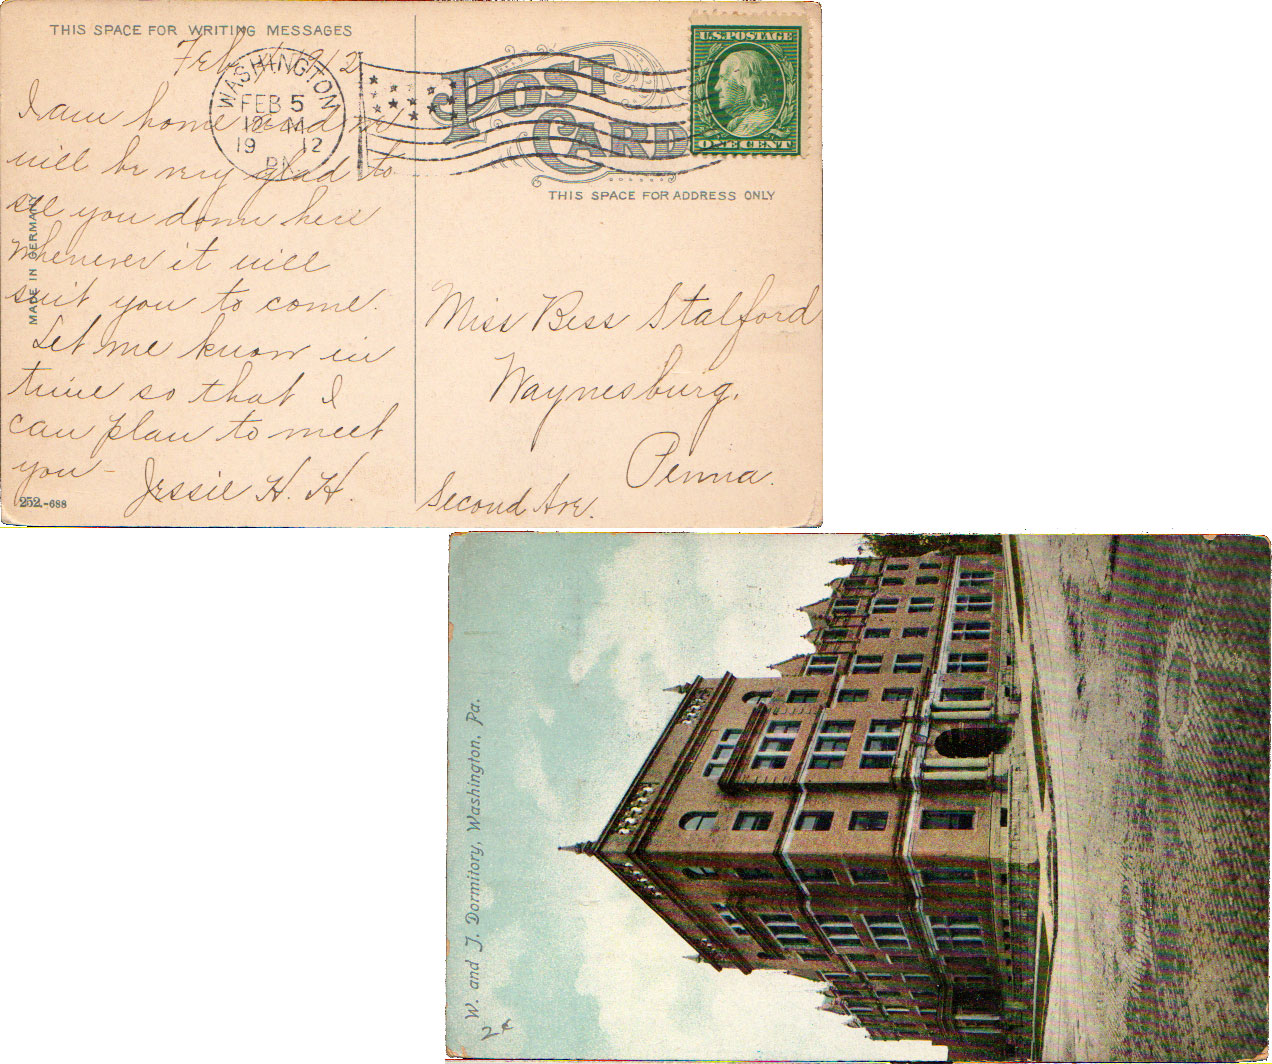 THIS SPACE FOR WRITING MESSAGES
Feb 1912
I am home and
will be very glad to
see you down here
whenever it will
suit you to come.
Let me know in
time so that I
can plan to meet
you-
Jessie H. H.
MADE IN GERMANY
252.-688
WASHINGTON
FEB 5
12-M
19 12
PA
POST
CARD
U.S.POSTAGE
ONE CENT
THIS SPACE FOR ADDRESS ONLY
Miss Bess Stalford
Waynesburg,
Penna.
Second Ave.
W. and J. Dormitory, Washington, Pa.
2¢